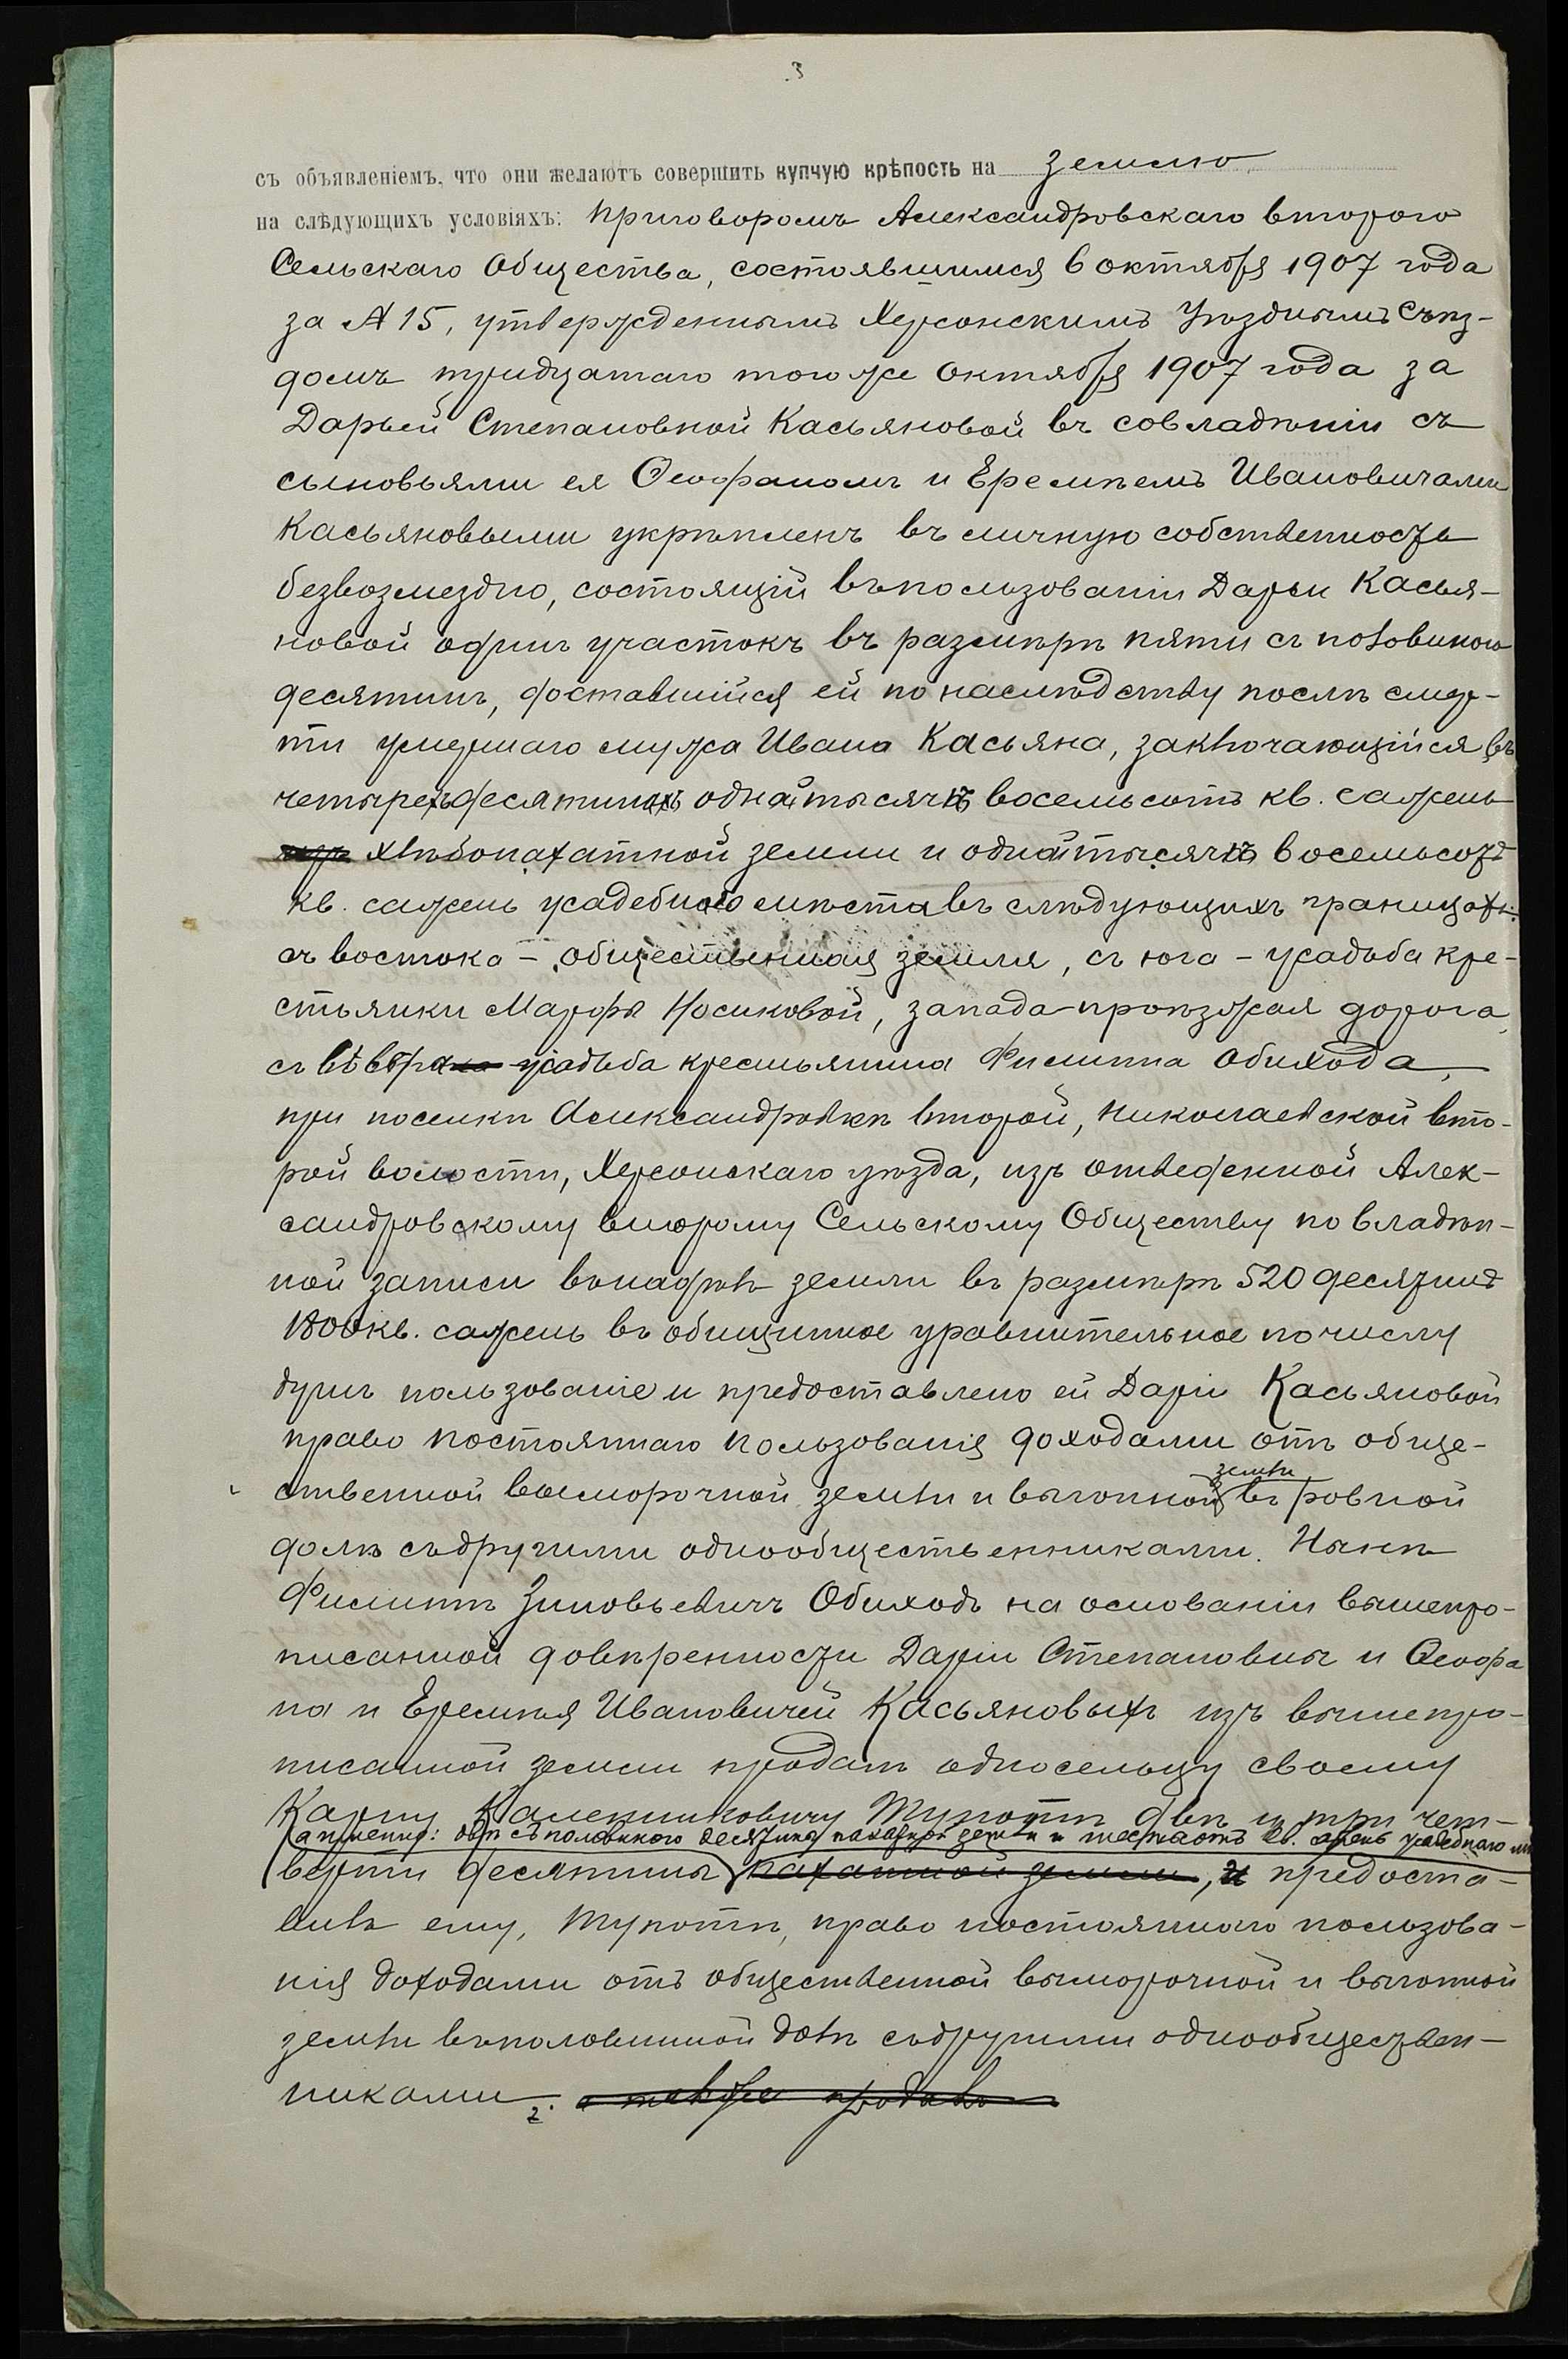 3
съ объявленіемъ, что они желаютъ совершить купчую крѣпость на землю
на слѣдующихъ условіяхъ: приговоромъ Александровскаго второго
Сельскаго Общества, состоявшимся 6 октября 1907 года
за № 15, утвержденнымъ Херсонскимъ Уѣзднымъ Съѣз-
домъ тридцатаго того же октября 1907 года за
Дарьей Степановной Касьяновой въ совладѣніи съ
сыновьями ея Ѳеофаномъ и Еремѣемъ Ивановичами
Касьяновыми укрѣпленъ въ личную собственность
безвозмездно, состоящій въ пользованіи Дарьи Касья-
новой одинъ участокъ въ размѣрѣ пяти съ половиною
десятинъ, доставшійся ей по наслѣдству послѣ смер-
ти умершаго мужа Ивана Касьяна, заключающійся въ
четырехъ десятинахъ одной тысячѣ восемьсотъ кв. сажень
хлѣбопахатной земли и одной тысячѣ восемьсотъ
кв. сажень усадебнаго мѣста въ слѣдующихъ границахъ:
съ востока – общественная земля, съ юга – усадьба кре-
стьянки Марфы Носиковой, запада – проѣзжая дорога,
съ сѣвера – усадьба крестьянина Филиппа Обихода,
при поселкѣ Александровкѣ второй, Николаевской вто-
рой волости, Херсонскаго уѣзда, изъ отведенной Алек-
сандровскому второму Сельскому Обществу по владѣн-
ной записи въ надѣлъ земли въ размѣрѣ 520 десятинъ
1800 кв. сажень въ общинное уравнительное по числу
душъ пользованіе и предоставлено ей Даріи Касьяновой
право постояннаго пользованія доходами отъ обще-
ственной выморочной земли и выгонной земли въ ровной
долѣ съ другими однообщественниками. Нынѣ
Филиппъ Зиновьевичъ Обиходъ на основаніи вышепро-
писанной довѣренности Даріи Степановны и Ѳеофа
на и Еремѣя Ивановичей Касьяновыхъ изъ вышепро-
писанной земли продалъ односельцу своему
Карпу Калениковичу Тупотѣ двѣ и три чет-
(а именно: двѣ съ половиною десятины пахатной земли и шестьсотъ кв. сажень усадебнаго
верти десятины пахатной земли, и предоста-
вилъ ему, Тупотѣ, право постояннаго пользова-
нія доходами отъ общественной выморочной и выгонной
земли въ половинной долѣ съ другими однообществен-
никами.